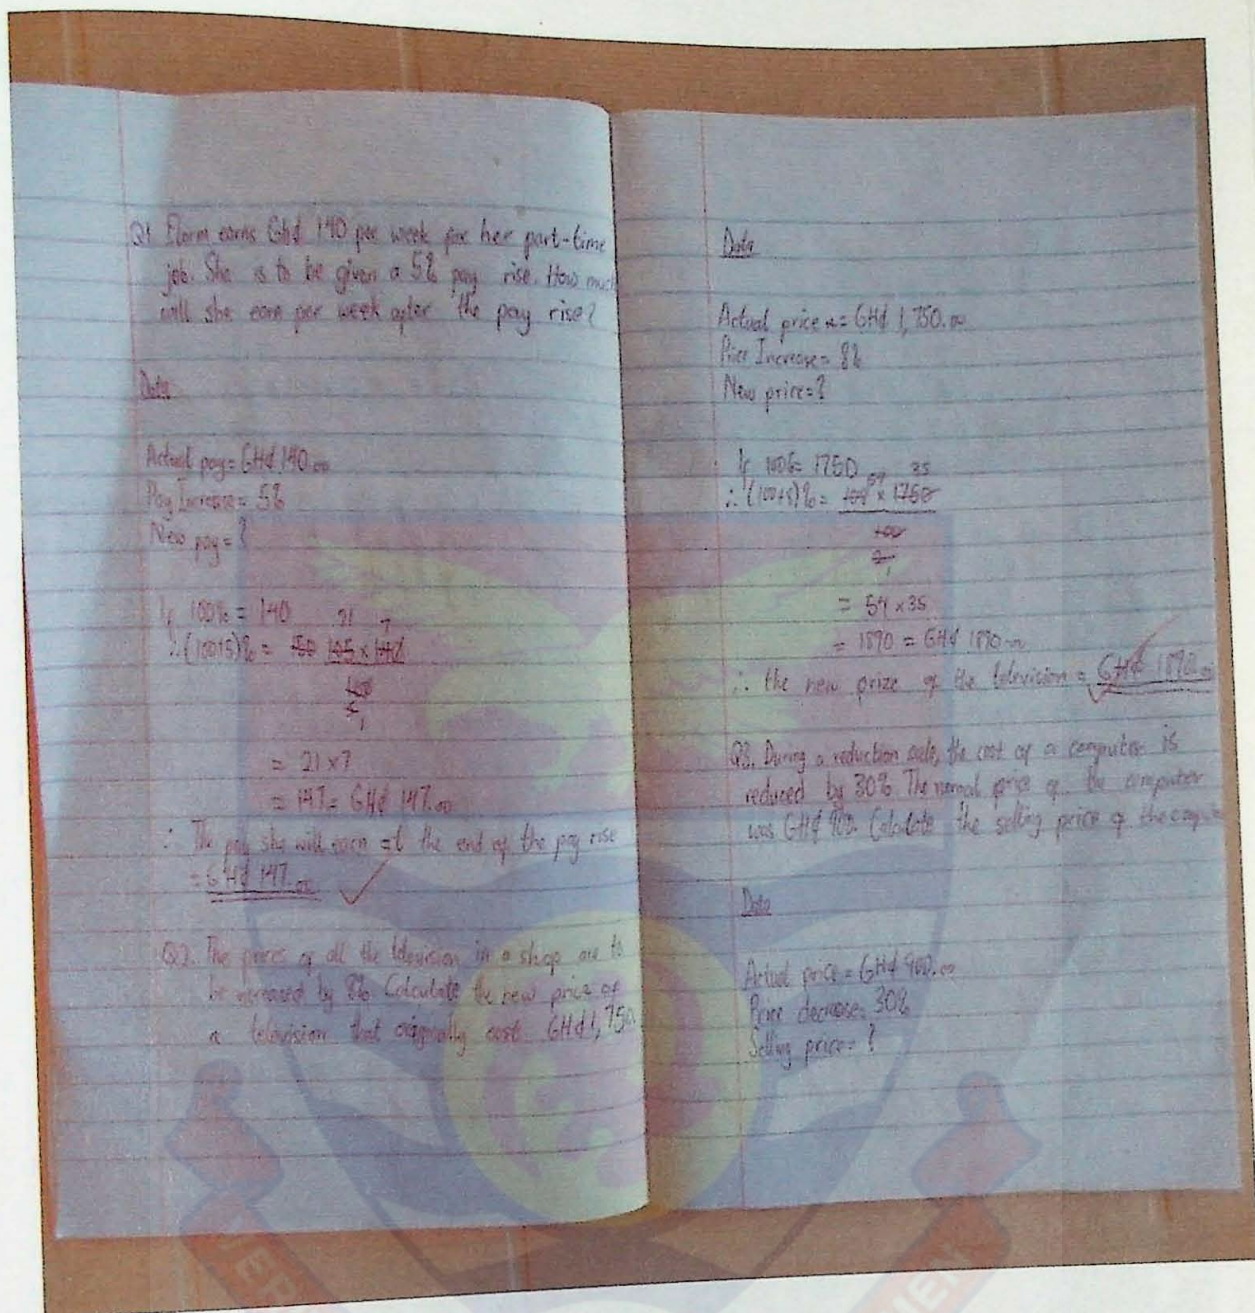 Q1 Elorm earns Gh¢ 140 per week for her part-time
job. She is to be given a 5% pay rise. How much
will she earn per week after the pay rise?
Data
Actual pay = GH¢ 140.00
Pay Increase = 5%
New pay = ?
If 100% = 140
21 7
∴ (100+5)% = 105 × 140
100
5 1
= 21 × 7
= 147 = GH¢ 147.00
∴ The pay she will earn at the end of the pay rise
= GH¢ 147.00
Q2. The prices of all the television in a shop are to
be increased by 8%. Calculate the new price of
a television that originally cost GH¢ 1,750.
Data
Actual price = GH¢ 1,750.00
Price Increase = 8%
New price = ?
If 100% = 1750
54 35
∴ (100+8)% = 108 × 1750
100
2 1
= 54 × 35
= 1890 = GH¢ 1890.00
∴ the new prize of the television = GH¢ 1890.00
Q3. During a reduction sale, the cost of a computer is
reduced by 30%. The normal price of the computer
was GH¢ 900. Calculate the selling price of the
Data
Actual price = GH¢ 900.00
Price decrease = 30%
Selling price = ?